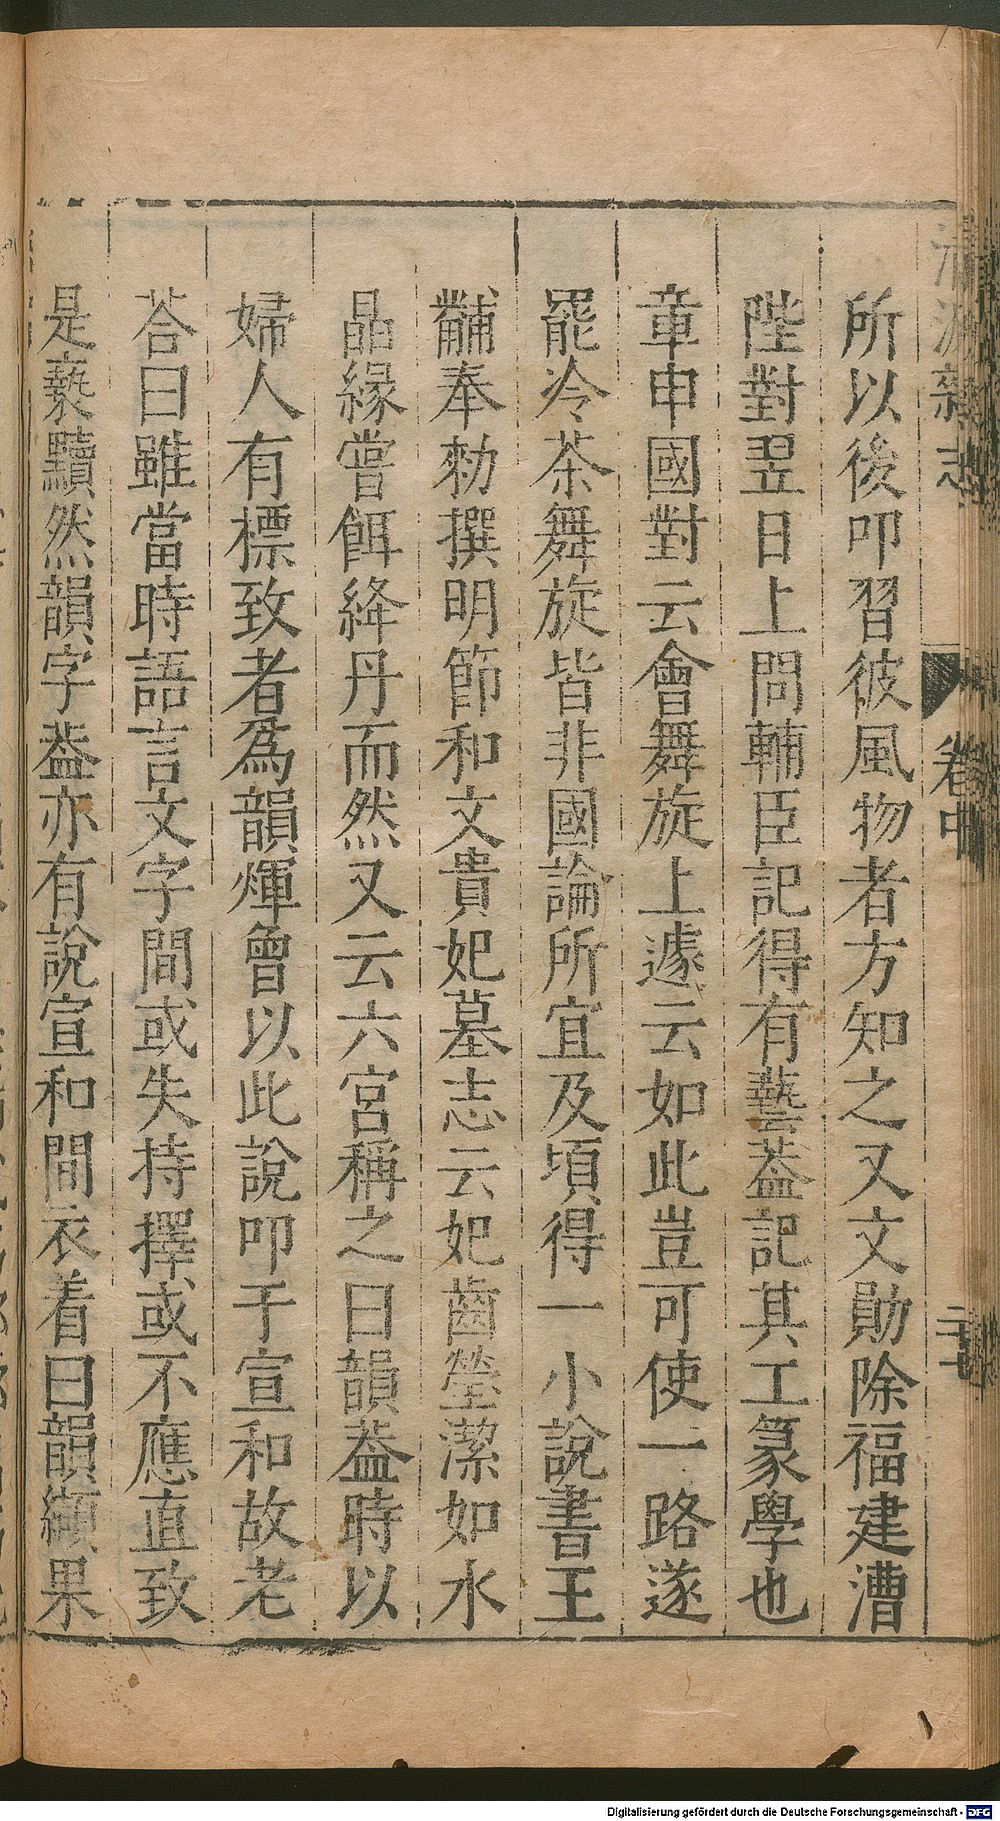 清波雜志
卷中
二十七
所以後叩習彼風物者方知之又文勛除福建漕
陛對翌日上問輔臣記得有藝葢記其工篆學也
章申國對云會舞旋上遽云如此豈可使一路遂
罷冷茶舞旋皆非國論所宜及頃得一小說書王
黼奉勑撰明節和文貴妃墓志云妃齒瑩潔如水
晶緣嘗餌絳丹而然又云六宮稱之曰韻葢時以
婦人有標致者爲韻煇曾以此說叩于宣和故老
荅曰雖當時語言文字間或失持擇或不應直致
是褻黷然韻字葢亦有說宣和間衣着曰韻纈果
Digitalisierung gefördert durch die Deutsche Forschungsgemeinschaft - DFG